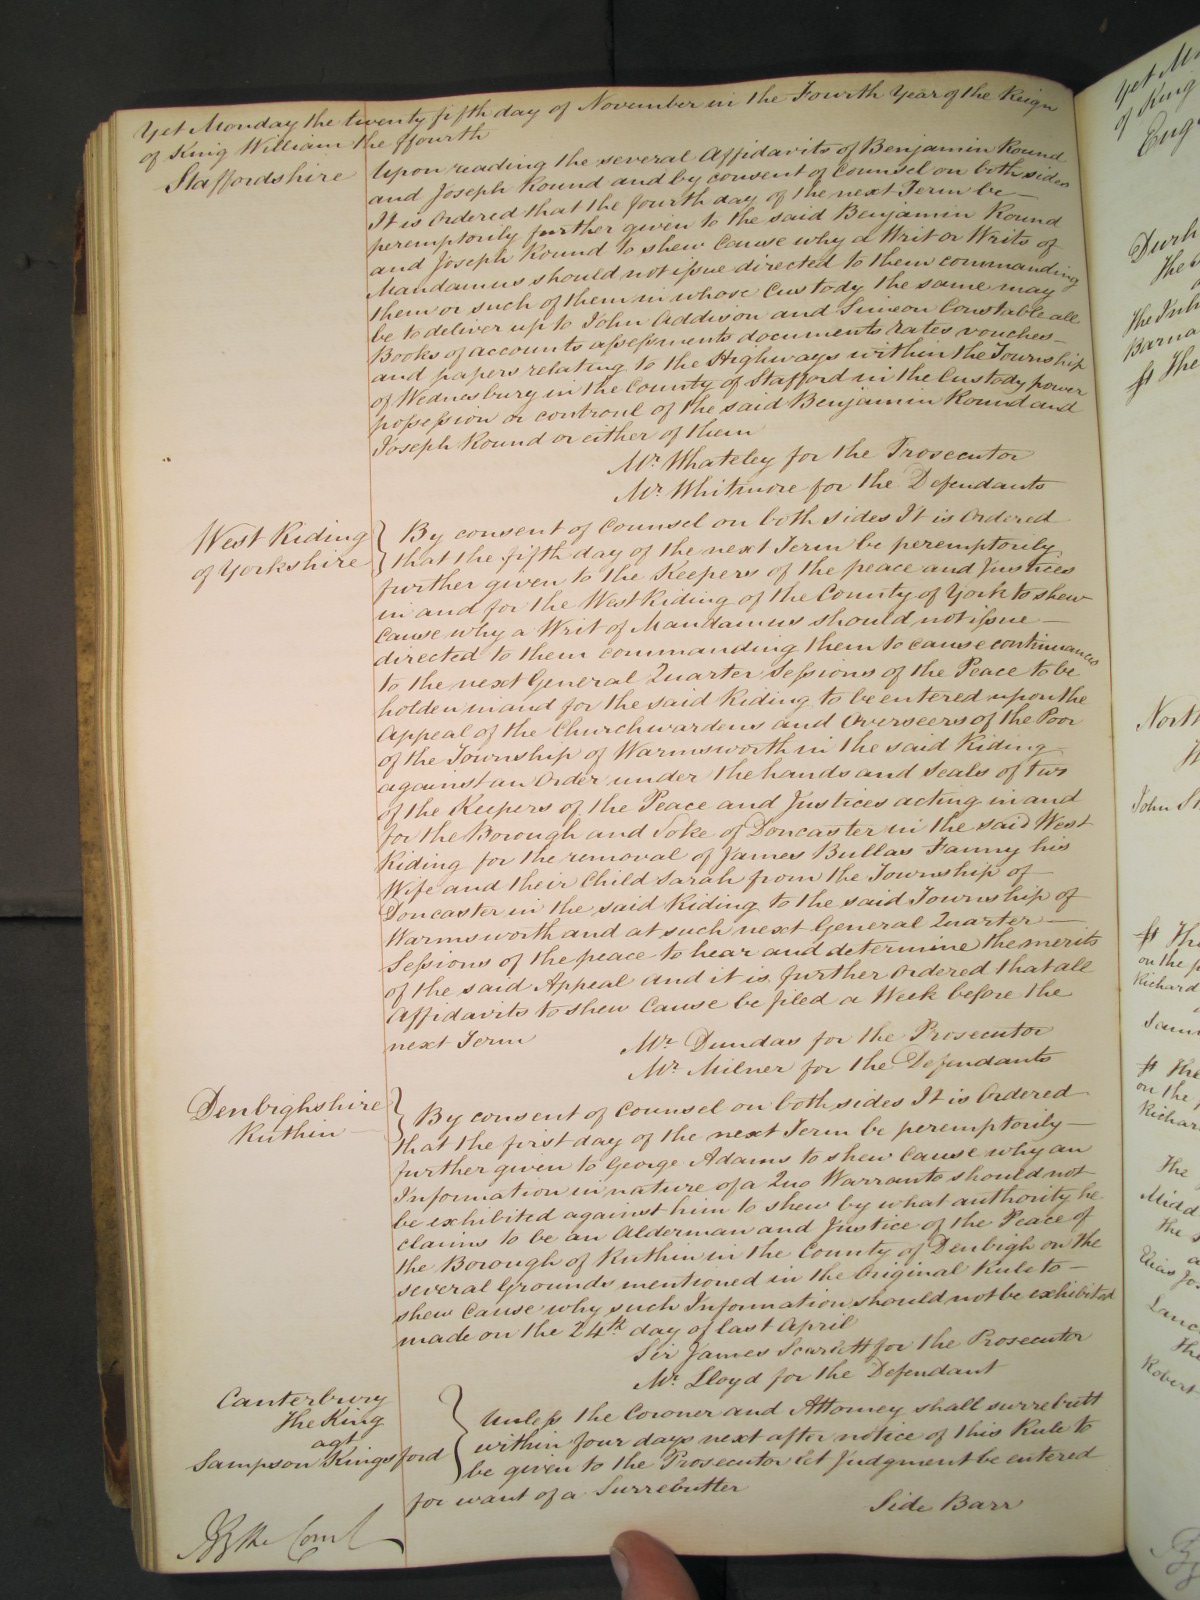 Yet Monday the twenty fifth day of November in the Fourth Year of the Reign
of King William the ffourth
Staffordshire
Upon reading the several Affidavits of Benjamin Round
and Joseph Round and by consent of Counsel on both sides
It is Ordered that the fourth day of the next Term be
peremptorily further given to the said Benjamin Round
and Joseph Round to shew Cause why a Writ or Writs of
Mandamus should not issue directed to them commanding
them or such of them in whose Custody the same may
be to deliver up to John Addison and Simeon Constable all
Books of accounts assessments documents rates vouches
and papers relating to the Highways within the Township
of Wednesbury in the County of Stafford in the Custody power
possession or controul of the said Benjamin Round and
Joseph Round or either of them
Mr. Whateley for the Prosecutor
Mr. Whitmore for the Defendants
West Riding
of Yorkshire
By consent of Counsel on both sides It is Ordered
that the fifth day of the next Term be peremptorily
further given to the Keepers of the peace and Justices
in and for the West Riding of the County of York to shew
cause why a Writ of Mandamus should not issue
directed to them commanding them to cause continuances
to the next General Quarter Sessions of the Peace to be
holden in and for the said Riding to be entered upon the
Appeal of the Churchwardens and Overseers of the Poor
of the Township of Warmsworth in the said Riding
against an Order under the hands and Seals of two
of the Keepers of the Peace and Justices acting in and
for the Borough and Soke of Doncaster in the said West
Riding for the removal of James Bullas Fanny his
Wife and their Child Sarah from the Township of
Doncaster in the said Riding to the said Township of
Warmsworth and at such next General Quarter
Sessions of the peace to hear and determine the merits
of the said Appeal and it is further ordered that all
Affidavits to shew Cause be filed a Week before the
next Term
Mr. Dundas for the Prosecutor
Mr. Milner for the Defendants
Denbighshire
Ruthin
By consent of Counsel on both sides It is Ordered
that the first day of the next Term be peremptorily
further given to George Adams to shew Cause why an
Information in nature of a Quo Warranto should not
be exhibited against him to shew by what authority he
claims to be an Alderman and Justice of the Peace of
the Borough of Ruthin in the County of Denbigh on the
several Grounds mentioned in the Original Rule to
shew Cause why such Information should not be exhibited
made on the 24th day of last April
Sir James Scarlett for the Prosecutor
Mr. Lloyd for the Defendant
Canterbury
The King
agt
Sampson Kingsford
Unless the Coroner and Attorney shall surrebutt
within four days next after notice of this Rule to
be given to the Prosecutor Let Judgment be entered
for want of a Surrebutter
Side Barr
By the Court